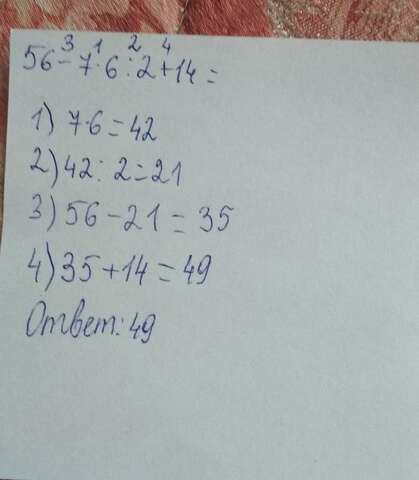 3 1 2 4
56-7·6:2+14=
1) 7·6=42
2) 42:2=21
3) 56-21=35
4) 35+14=49
Ответ: 49